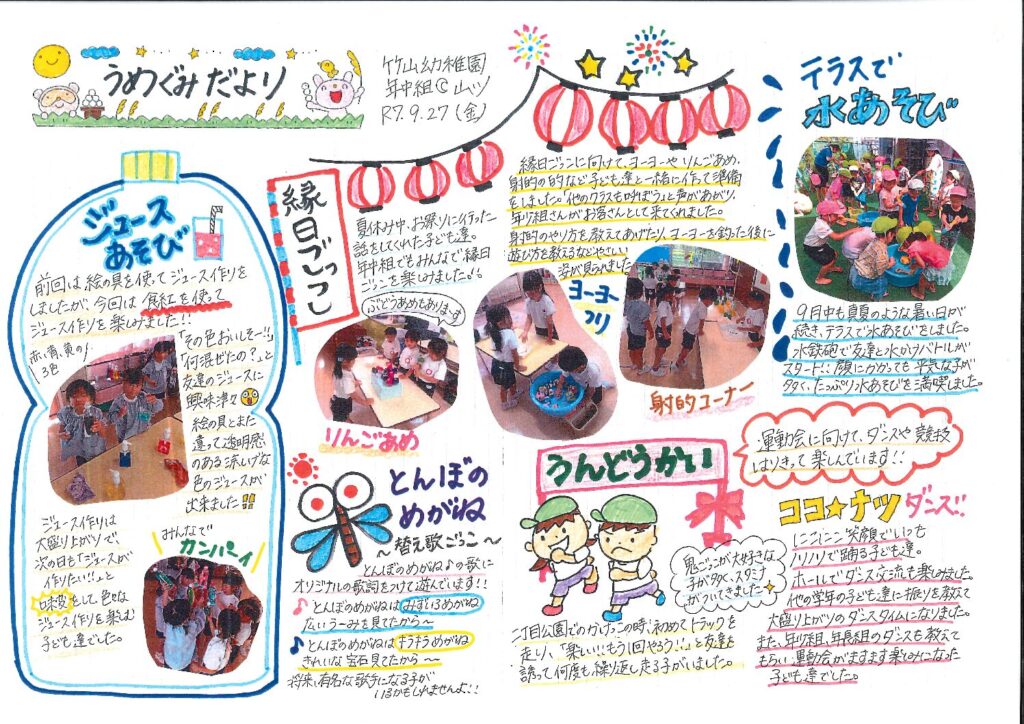 うめぐみだより
竹山幼稚園
年中組
R7.9.27(金)
ジュース
あそび
前回は絵の具を使ってジュース作りを
しましたが、今回は食紅を使って
ジュース作りを楽しみました!!
赤、青、黄の
3色
「その色おいしそ〜!」
「何混ぜたの?」と
友達のジュースに
興味津々
絵の具とまた
違って透明感
のある涼しげな
色のジュースが
出来ました!!
ジュース作りは
大盛り上がりで、
次の日も「ジュースが
作りたい!!」と
をして色々な
ジュース作りを楽しむ
子ども達でした。
みんなで
カンパーイ
縁日ごっこ
夏休み中、お祭りに行った
話をしてくれた子ども達。
年中組でもみんなで縁日
ごっこを楽しみました!!
ぶどうあめもあります
りんごあめ
縁日ごっこに向けて、ヨーヨーやりんごあめ、
射的の的など子ども達と一緒に作って準備
をしました。「他のクラスも呼ぼう」と声があがり、
年少組さんがお客さんとして来てくれました。
射的のやり方を教えてあげたり、ヨーヨーを釣った後に
遊び方を教えるなどやさしい
姿が見られました
ヨーヨー
つり
射的コーナー
テラスで
水あそび
9月中も真夏のような暑い日が
続き、テラスで水あそびをしました。
水鉄砲で友達と水かけバトルが
スタート!!顔にかかっても平気な子が
多く、たっぷり水あそびを満喫しました。
とんぼの
めがね
〜替え歌ごっこ〜
とんぼのめがね♪の歌に
オリジナルの歌詞をつけて遊んでいます!!
♪とんぼのめがねはみずいろめがね
広いうーみを見てたから〜
♪とんぼのめがねはキラキラめがね
きれいな宝石見てたから〜
将来、有名な歌手になる子が
いるかもしれませんよ!!
うんどうかい
鬼ごっこが大好きな
子が多く、スタミナ
がついてきました
二丁目公園でのかけっこの時、初めてトラックを
走り、「楽しい!!もう1回やろう!!」と友達を
誘って何度も繰り返し走る子がいました。
運動会に向けて、ダンスや競技
はりきって楽しんでいます!!
ココ★ナツ ダンス!!
にこにこ笑顔でいつも
ノリノリで踊る子ども達。
ホールでダンス交流も楽しみました。
他の学年の子ども達に振りを教えて
大盛り上がりのダンスタイムになりました。
また、年少組、年長組のダンスも教えて
もらい運動会がますます楽しみになった
子ども達でした。